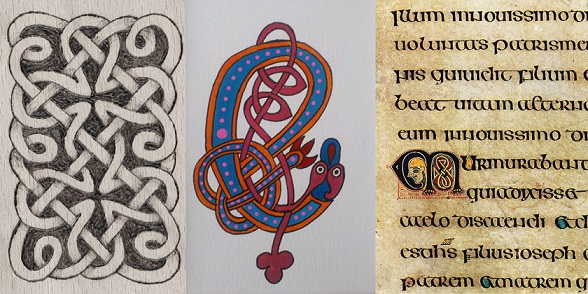 illum innouissimo d
uoluntas patrisme
his quiuidit filium
beat uitam aetern
eum innouissimo di
Murmurabant
quiadixisse
caelo discendi
estihs filiusioseph
patrem etmatrem